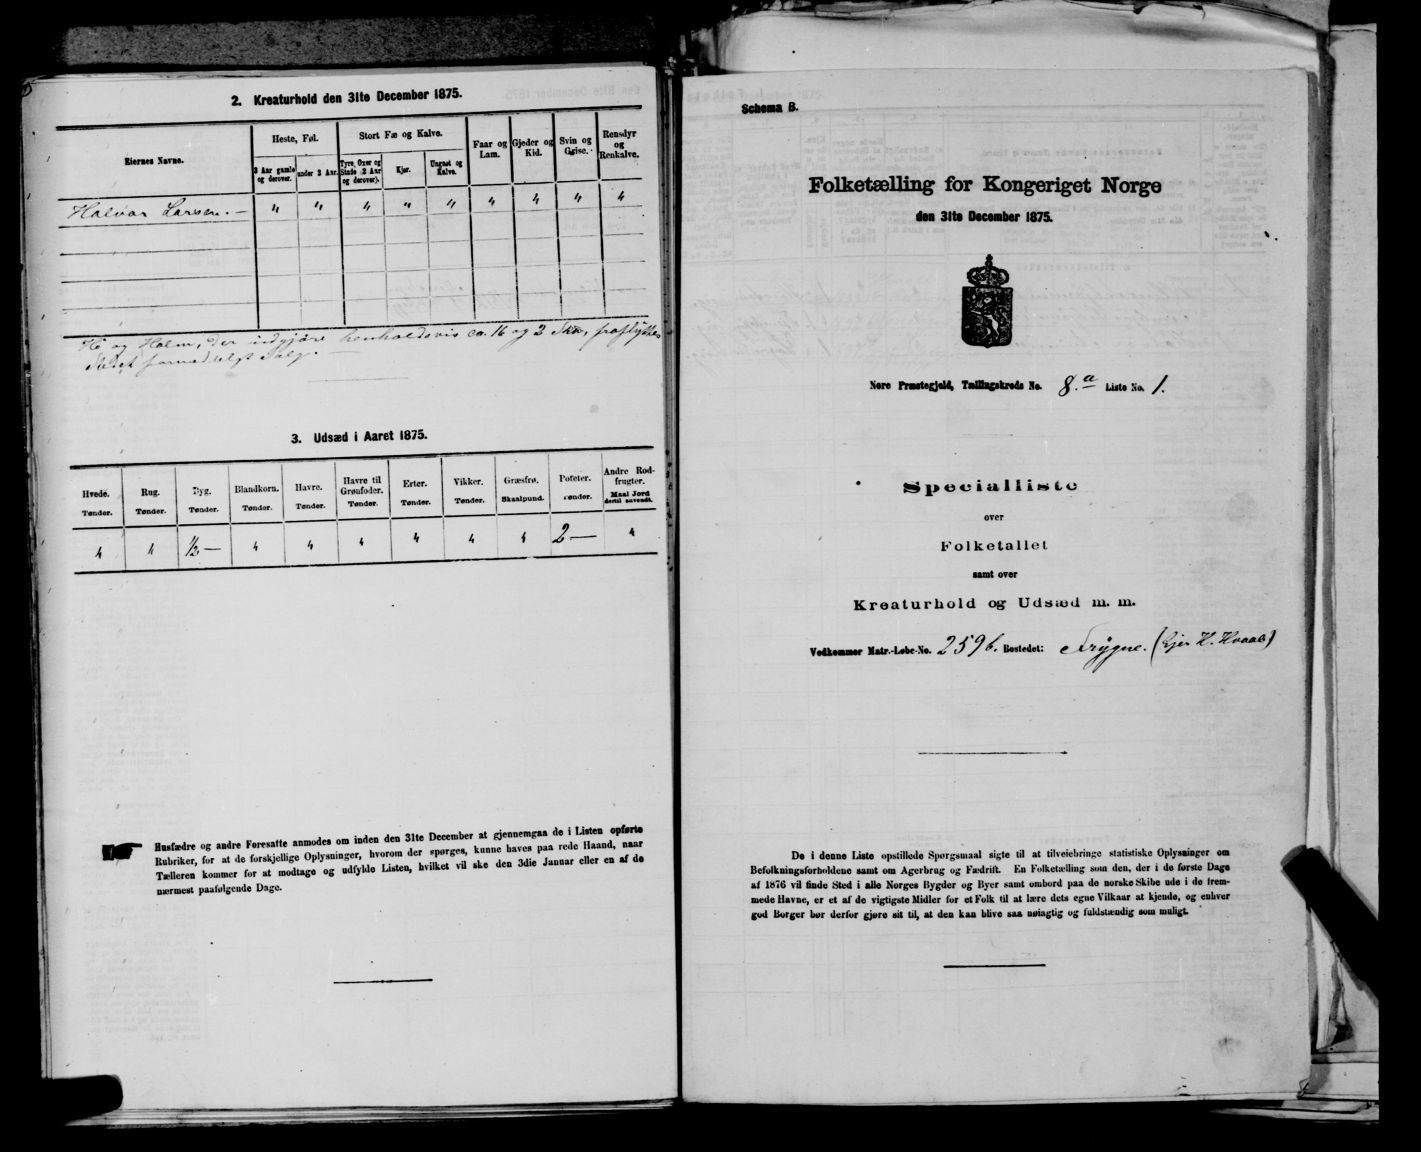 2. Kreaturhold den 31te December 1875.
Eiernes Navne.
Heste, Føl.
Stort Fæ og Kalve.
Faar og Lam.
Gjeder og Kid.
Svin og Grise.
Rensdyr og Renkalve.
3 Aar gamle og derover.
under 3 Aar.
Tyre, Oxer og Stude (2 Aar og derover).
Kjør.
Ungnøt og Kalve.
Halvor Larsen. — " " " " " " " " "
Hø og Halm, der udgjøre henholdsvis ca. 16 og 2 Sk℔, fraflyttes
Stedet formedelst Salg. —
3. Udsæd i Aaret 1875.
Hvede. Rug. Byg. Blandkorn. Havre. Havre til Grønfoder. Erter. Vikker. Græsfrø. Poteter. Andre Rodfrugter.
Tønder. Tønder. Tønder. Tønder. Tønder. Tønder. Tønder. Tønder. Skaalpund. Tønder. Maal Jord dertil anvendt.
" " ½ — " " " " " " 2 — "
Husfædre og andre Foresatte anmodes om inden den 31te December at gjennemgaa de i Listen opførte
Rubriker, for at de forskjellige Oplysninger, hvorom der spørges, kunne haves paa rede Haand, naar
Tælleren kommer for at modtage og udfylde Listen, hvilket vil ske den 3die Januar eller en af de
nærmest paafølgende Dage.
Schema B.
Folketælling for Kongeriget Norge
den 31te December 1875.
Nore Præstegjeld, Tællingskreds No. 8.a Liste No. 1.
Specialliste
over
Folketallet
samt over
Kreaturhold og Udsæd m. m.
Vedkommer Matr.-Løbe-No. 259b. Bostedet: Frygne. (Ejer H. Hvaale)
De i denne Liste opstillede Spørgsmaal sigte til at tilveiebringe statistiske Oplysninger om
Befolkningsforholdene samt om Agerbrug og Fædrift. En Folketælling som den, der i de første Dage
af 1876 vil finde Sted i alle Norges Bygder og Byer samt ombord paa de norske Skibe ude i de frem-
mede Havne, er et af de vigtigste Midler for et Folk til at lære dets egne Vilkaar at kjende, og enhver
god Borger bør derfor gjøre sit til, at den kan blive saa nøiagtig og fuldstændig som muligt.